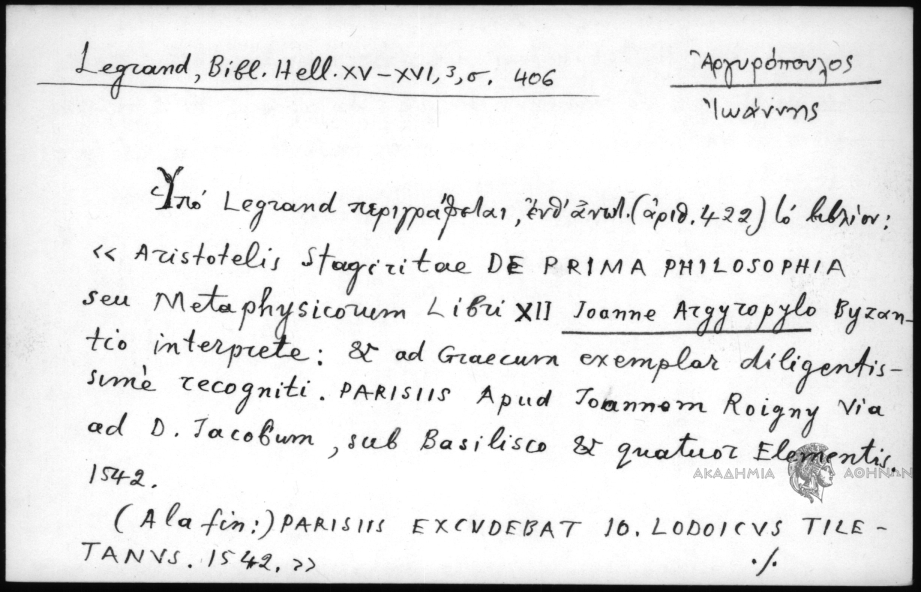 Legrand, Bibl. Hell. XV-XVI, 3, σ. 406
Ἀργυρόπουλος
Ἰωάννης
Ὑπό Legrand περιγράφεται, ἔνθ' ἀνωτ. (ἀριθ. 422) τό βιβλίον:
« Aristotelis Stagiritae DE PRIMA PHILOSOPHIA
seu Metaphysicorum Libri XII Joanne Argyropylo Byzan-
tio interprete: & ad Graecum exemplar diligentis-
simè recogniti. PARISIIS Apud Joannem Roigny Via
ad D. Jacobum, sub Basilisco & quatuor Elementis.
1542.
ΑΚΑΔΗΜΙΑ ΑΘΗΝΩΝ
(A la fin:) PARISIIS EXCVDEBAT IO. LODOICVS TILE-
TANVS. 1542. »
./.